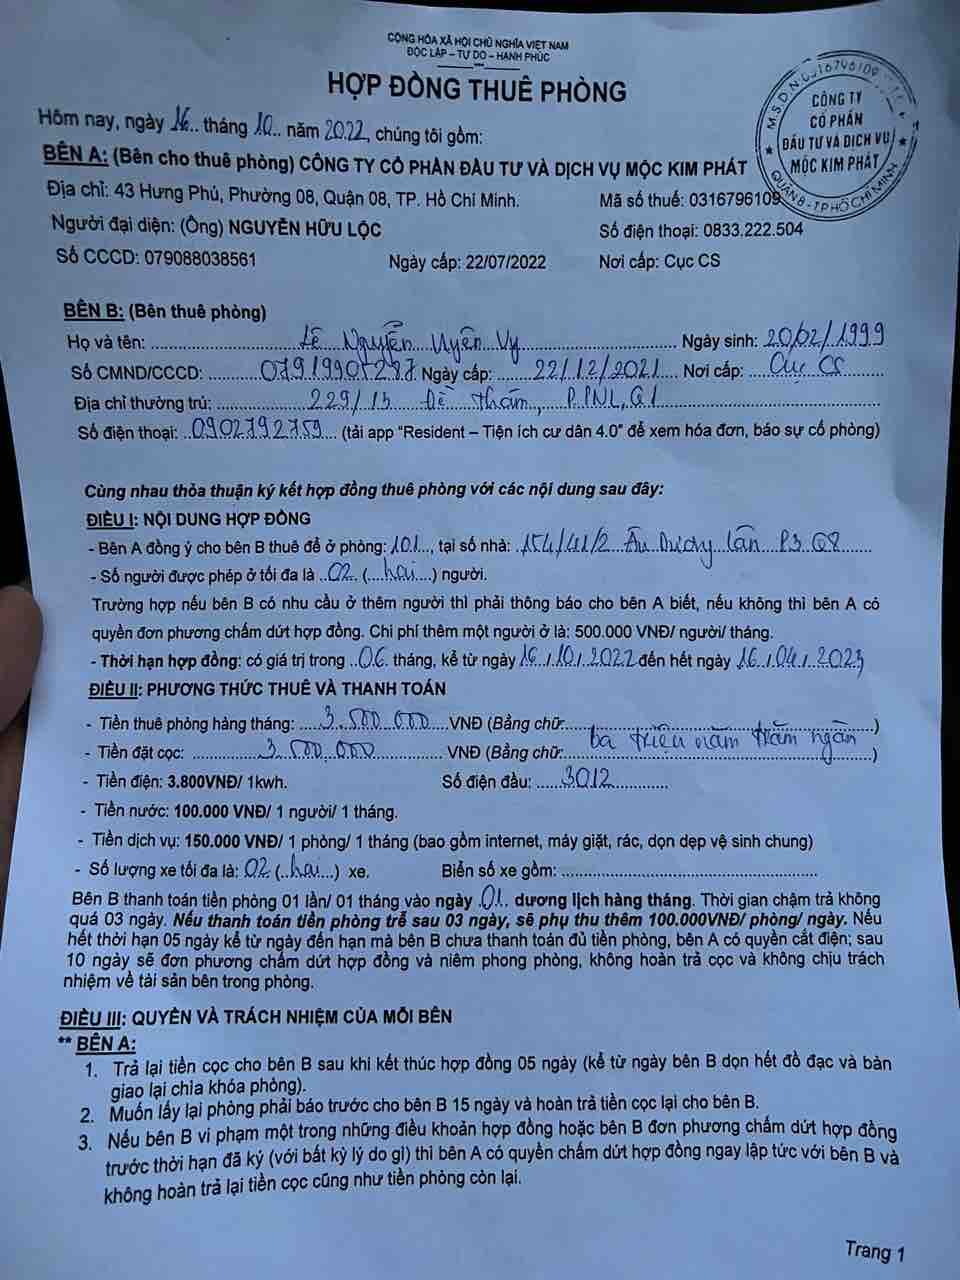 CỘNG HÒA XÃ HỘI CHỦ NGHĨA VIỆT NAM
ĐỘC LẬP – TỰ DO – HẠNH PHÚC
HỢP ĐỒNG THUÊ PHÒNG
M.S.D.N: 0316796109
CÔNG TY
CỔ PHẦN
ĐẦU TƯ VÀ DỊCH VỤ
MỘC KIM PHÁT
QUẬN 8 - TP HỒ CHÍ MINH
Hôm nay, ngày 16.. tháng 10.. năm 2022, chúng tôi gồm:
BÊN A: (Bên cho thuê phòng) CÔNG TY CỔ PHẦN ĐẦU TƯ VÀ DỊCH VỤ MỘC KIM PHÁT
Địa chỉ: 43 Hưng Phú, Phường 08, Quận 08, TP. Hồ Chí Minh. Mã số thuế: 0316796109
Người đại diện: (Ông) NGUYỄN HỮU LỘC Số điện thoại: 0833.222.504
Số CCCD: 079088038561 Ngày cấp: 22/07/2022 Nơi cấp: Cục CS
BÊN B: (Bên thuê phòng)
Họ và tên: Lê Nguyễn Uyên Vy Ngày sinh: 20/02/1999
Số CMND/CCCD: Ngày cấp: 22/12/2021 Nơi cấp: Cục CS
Địa chỉ thường trú: 229/15 Đề Thám, P.PNL, Q1
Số điện thoại: 0902792759 (tải app "Resident – Tiện ích cư dân 4.0" để xem hóa đơn, báo sự cố phòng)
Cùng nhau thỏa thuận ký kết hợp đồng thuê phòng với các nội dung sau đây:
ĐIỀU I: NỘI DUNG HỢP ĐỒNG
- Bên A đồng ý cho bên B thuê để ở phòng: 101, tại số nhà: 154/41/2 Âu Dương Lân P3 Q8
- Số người được phép ở tối đa là 02 (hai) người.
Trường hợp nếu bên B có nhu cầu ở thêm người thì phải thông báo cho bên A biết, nếu không thì bên A có
quyền đơn phương chấm dứt hợp đồng. Chi phí thêm một người ở là: 500.000 VNĐ/ người/ tháng.
- Thời hạn hợp đồng: có giá trị trong 06 tháng, kể từ ngày 16/10/2022 đến hết ngày 16/04/2023
ĐIỀU II: PHƯƠNG THỨC THUÊ VÀ THANH TOÁN
- Tiền thuê phòng hàng tháng: 3.500.000 VNĐ (Bằng chữ )
- Tiền đặt cọc: 3.500.000 VNĐ (Bằng chữ ba triệu năm trăm ngàn )
- Tiền điện: 3.800VNĐ/ 1kwh. Số điện đầu: 3012
- Tiền nước: 100.000 VNĐ/ 1 người/ 1 tháng.
- Tiền dịch vụ: 150.000 VNĐ/ 1 phòng/ 1 tháng (bao gồm internet, máy giặt, rác, dọn dẹp vệ sinh chung)
- Số lượng xe tối đa là: 02 (hai) xe. Biển số xe gồm:
Bên B thanh toán tiền phòng 01 lần/ 01 tháng vào ngày 01 dương lịch hàng tháng. Thời gian chậm trả không
quá 03 ngày. Nếu thanh toán tiền phòng trễ sau 03 ngày, sẽ phụ thu thêm 100.000VNĐ/ phòng/ ngày. Nếu
hết thời hạn 05 ngày kể từ ngày đến hạn mà bên B chưa thanh toán đủ tiền phòng, bên A có quyền cắt điện; sau
10 ngày sẽ đơn phương chấm dứt hợp đồng và niêm phong phòng, không hoàn trả cọc và không chịu trách
nhiệm về tài sản bên trong phòng.
ĐIỀU III: QUYỀN VÀ TRÁCH NHIỆM CỦA MỖI BÊN
** BÊN A:
1. Trả lại tiền cọc cho bên B sau khi kết thúc hợp đồng 05 ngày (kể từ ngày bên B dọn hết đồ đạc và bàn
giao lại chìa khóa phòng).
2. Muốn lấy lại phòng phải báo trước cho bên B 15 ngày và hoàn trả tiền cọc lại cho bên B.
3. Nếu bên B vi phạm một trong những điều khoản hợp đồng hoặc bên B đơn phương chấm dứt hợp đồng
trước thời hạn đã ký (với bất kỳ lý do gì) thì bên A có quyền chấm dứt hợp đồng ngay lập tức với bên B và
không hoàn trả lại tiền cọc cũng như tiền phòng còn lại.
Trang 1